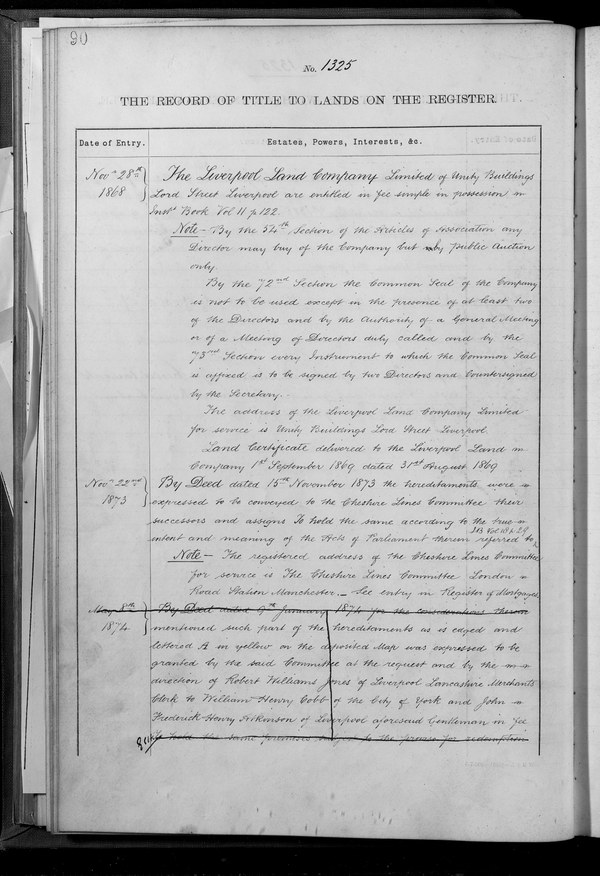 90
No. 1325
THE RECORD OF TITLE TO LANDS ON THE REGISTER.
Date of Entry.
Estates, Powers, Interests, &c.
Nov.r 28th 1868
The Liverpool Land Company Limited of Unity Buildings
Lord Street Liverpool are entitled in fee simple in possession
Inst Book Vol 11 p 122.
Note - By the 54th Section of the Articles of Association any
Director may buy of the Company but by public Auction
only.
By the 72nd Section the Common Seal of the Company
is not to be used except in the presence of at least two
of the Directors and by the Authority of a General Meeting
or of a Meeting of Directors duly called and by the
73rd Section every Instrument to which the Common Seal
is affixed is to be signed by two Directors and Countersigned
by the Secretary.
The address of the Liverpool Land Company Limited
for service is Unity Buildings Lord Street Liverpool
Land Certificate delivered to the Liverpool Land
Company 1st September 1869 dated 31st August 1869
Nov.r 22nd 1873
By Deed dated 15th November 1873 the hereditaments were
expressed to be conveyed to the Cheshire Lines Committee their
successors and assigns To hold the same according to the true
I.B. Vol 18 p 29
intent and meaning of the Acts of Parliament therein referred to
Note - The registered address of the Cheshire Lines Committee
for service is The Cheshire Lines Committee London
Road Station Manchester. - See entry in Register of Mortgages
May 8th 1874
By Deed dated 9th January 1874 for the considerations therein
mentioned such part of the hereditaments as is edged and
lettered A in yellow on the deposited Map was expressed to be
granted by the said Committee at the request and by the
direction of Robert Williams Jones of Liverpool Lancashire Merchants
Clerk to William Henry Cobb of the City of York and John
Frederick Henry Atkinson of Liverpool aforesaid Gentleman in fee
To hold the same premises subject to the proviso for redemption